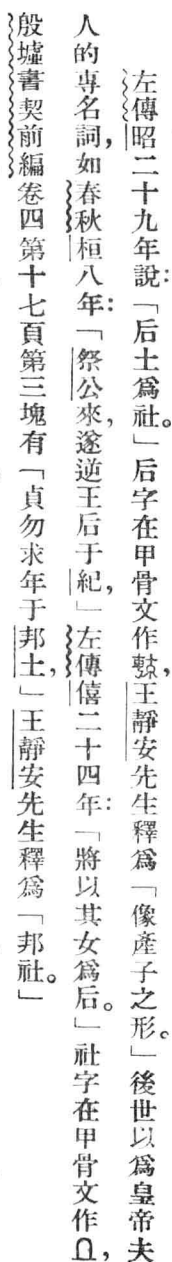 左傳昭二十九年說：「后土爲社。」后字在甲骨文作，王靜安先生釋爲「像產子之形。」後世以爲皇帝夫
人的專名詞，如春秋桓八年：「祭公來，遂逆王后于紀，」左傳僖二十四年：「將以其女爲后。」社字在甲骨文作，
殷墟書契前編卷四第十七頁第三塊有「貞勿求年于邦土，」王靜安先生釋爲「邦社。」